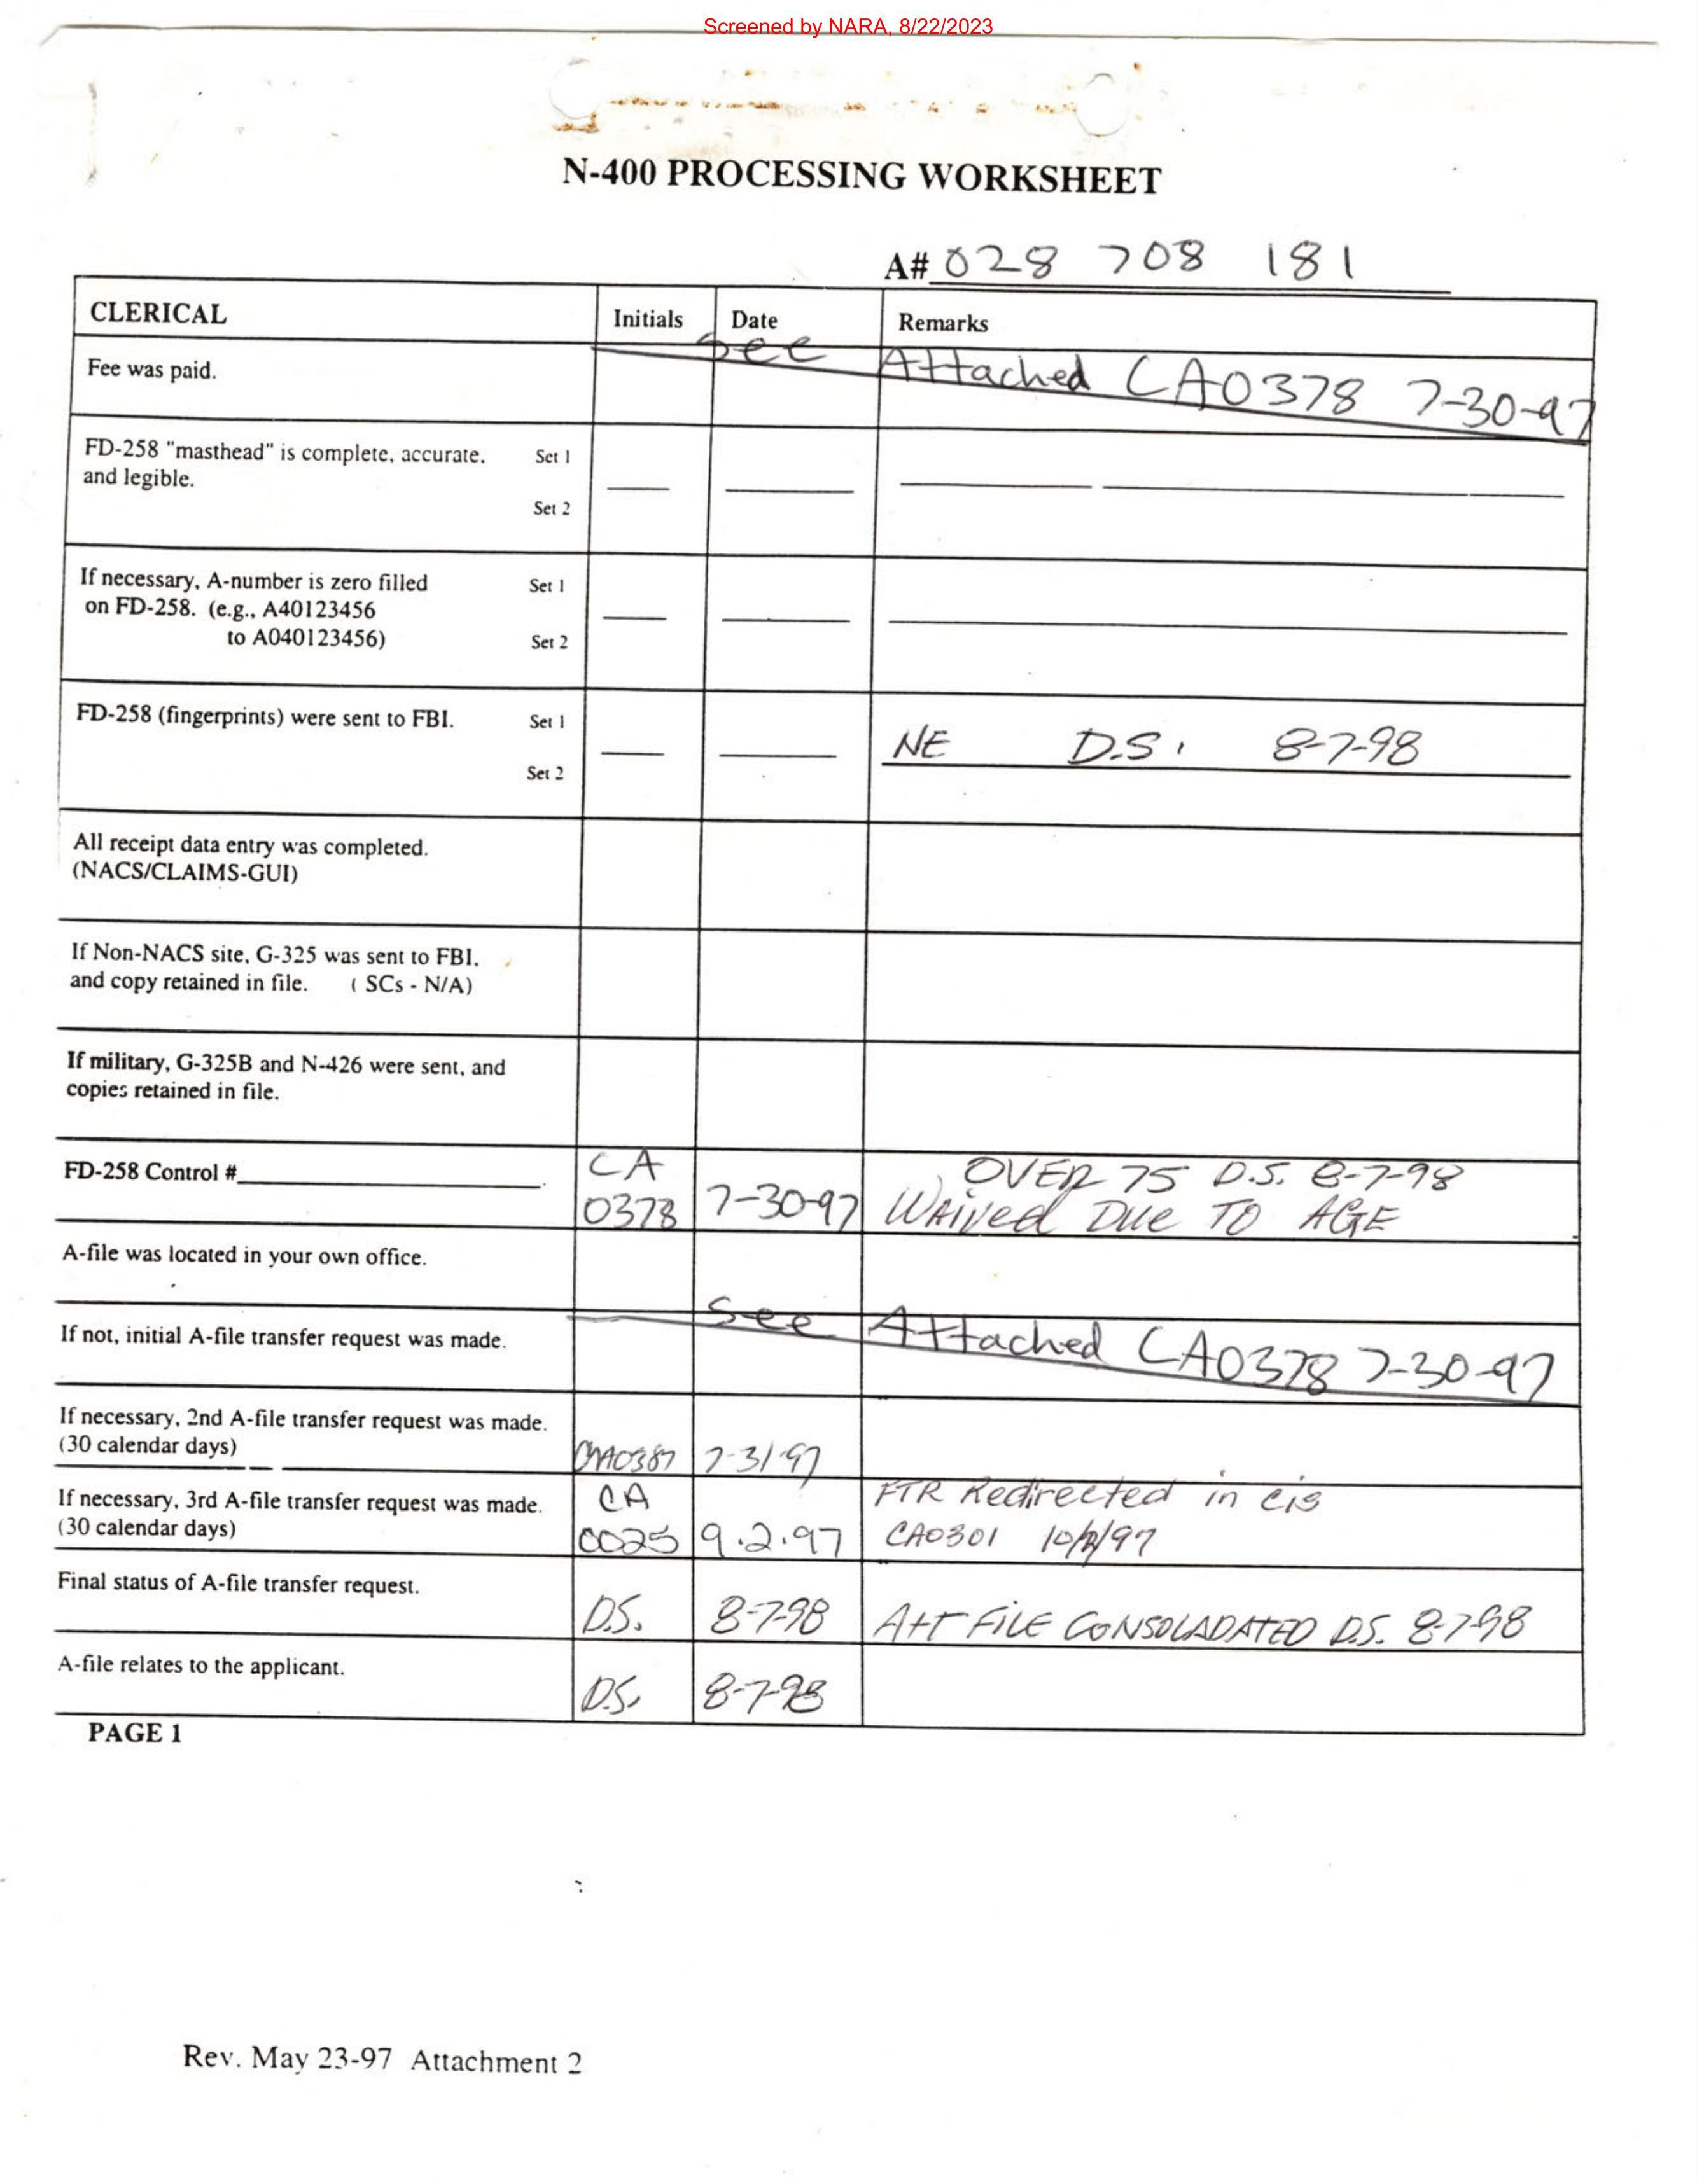 Screened by NARA, 8/22/2023
N-400 PROCESSING WORKSHEET
A# 028 708 181
CLERICAL Initials Date Remarks
Fee was paid. See Attached CA0378 7-30-97
FD-258 "masthead" is complete, accurate, Set 1
and legible.
Set 2
If necessary, A-number is zero filled Set 1
on FD-258. (e.g., A40123456
to A040123456) Set 2
FD-258 (fingerprints) were sent to FBI. Set 1
NE D.S. 8-7-98
Set 2
All receipt data entry was completed.
(NACS/CLAIMS-GUI)
If Non-NACS site, G-325 was sent to FBI.
and copy retained in file. ( SCs - N/A)
If military, G-325B and N-426 were sent, and
copies retained in file.
FD-258 Control # CA OVER 75 D.S. 8-7-98
0378 7-30-97 Waived Due TO AGE
A-file was located in your own office.
If not, initial A-file transfer request was made. See Attached CA0378 7-30-97
If necessary, 2nd A-file transfer request was made.
(30 calendar days) 7-31-97
If necessary, 3rd A-file transfer request was made. CA FTR Redirected in cis
(30 calendar days) 0025 9.2.97 CA0301
Final status of A-file transfer request.
D.S. 8-7-98 A+T FILE CONSOLADATED D.S. 8-7-98
A-file relates to the applicant.
D.S. 8-7-98
PAGE 1
Rev. May 23-97 Attachment 2